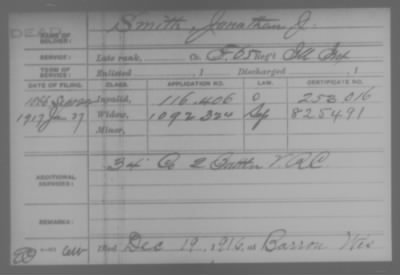 DEAD
NAME OF SOLDIER: Smith, Jonathan J.
SERVICE: Late rank, Co. F, 65 Reg't Ill Inf
TERM OF SERVICE: Enlisted , 1 Discharged , 1
DATE OF FILING. CLASS. APPLICATION NO. LAW. CERTIFICATE NO.
Invalid, 116.406 253.016
1917 Jan 27 Widow, 1092.324 825491
Minor,
ADDITIONAL SERVICES: 34 Co 2 Battn V.R.C.
REMARKS:
Died Dec 19, 1916, at Barron Wis